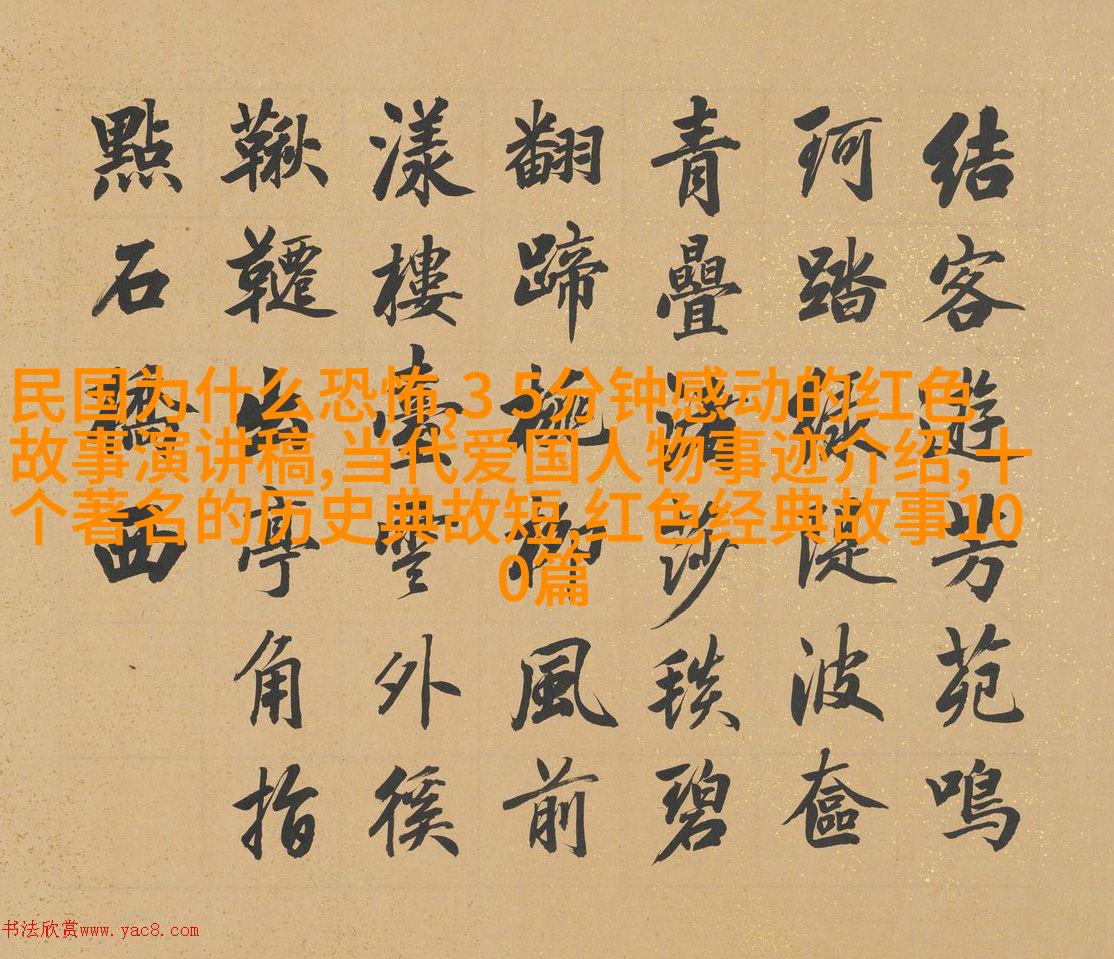 結客遊芳苑鳴
珂踏綠隄波奩
青疊莎毯碧
翻蹄風前
漾樓臺雲外徯
鞦韆出亭角指
點石橋西
民国为什么恐怖,3 5分钟感动的红色
故事演讲稿,当代爱国人物事迹介绍,十
个著名的历史典故短,红色经典故事10
0篇
书法欣赏www.yac8.com